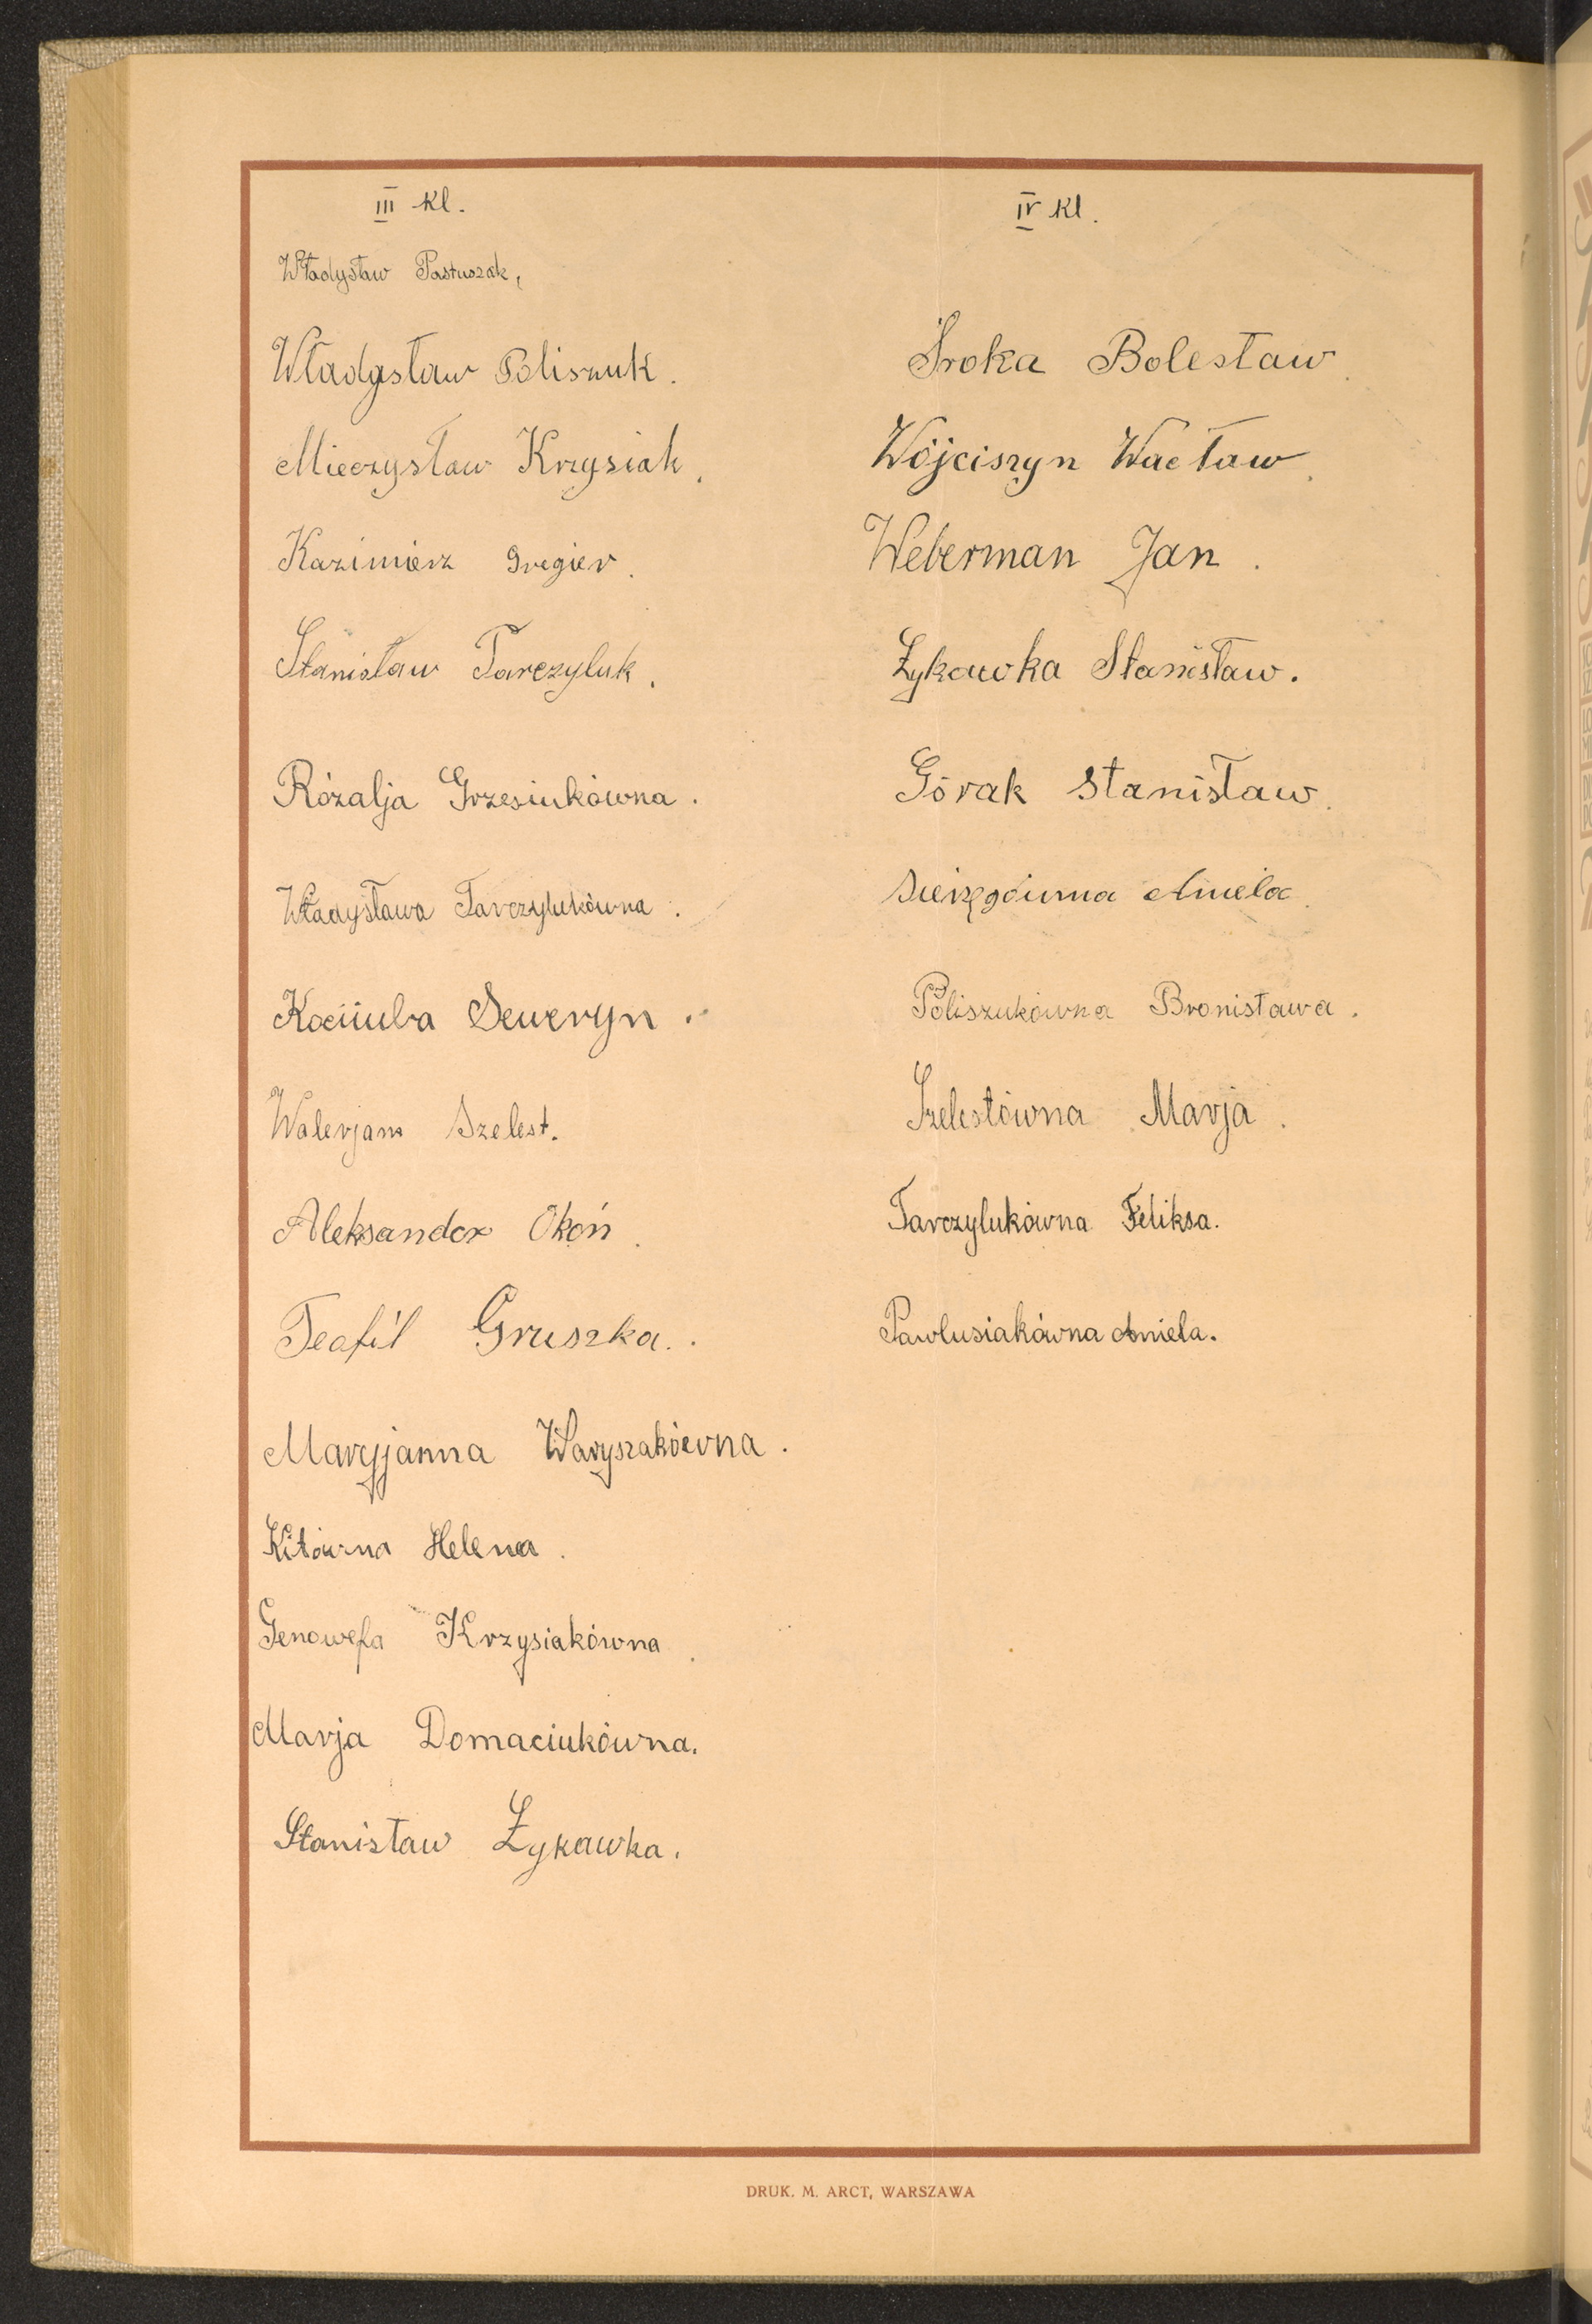 III kl.
Władysław Pastuszak,
Władysław Poliszuk.
Mieczysław Krzysiak.
Kazimierz Gregier.
Stanisław Tarczyluk.
Rózalja Grzesiukówna.
Władysława Tarczylukówna.
Kociuba Seweryn.
Walerjan Szelest.
Aleksander Okoń.
Teofil Gruszka.
Maryjanna Waryszakówna.
Kitówna Helena.
Genowefa Krzysiakówna.
Marja Domaciukówna.
Stanisław Żykawka.
IV kl.
Sroka Bolesław.
Wójciszyn Wacław.
Weberman Jan.
Żykawka Stanisław.
Górak Stanisław.
Aniela.
Poliszukówna Bronisława.
Szelestówna Marja.
Tarczylukówna Feliksa.
Pawlusiakówna Aniela.
DRUK. M. ARCT, WARSZAWA